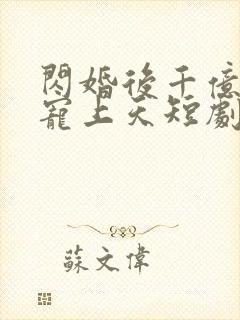 閃婚後千億
寵上天短劇
蘇文偉